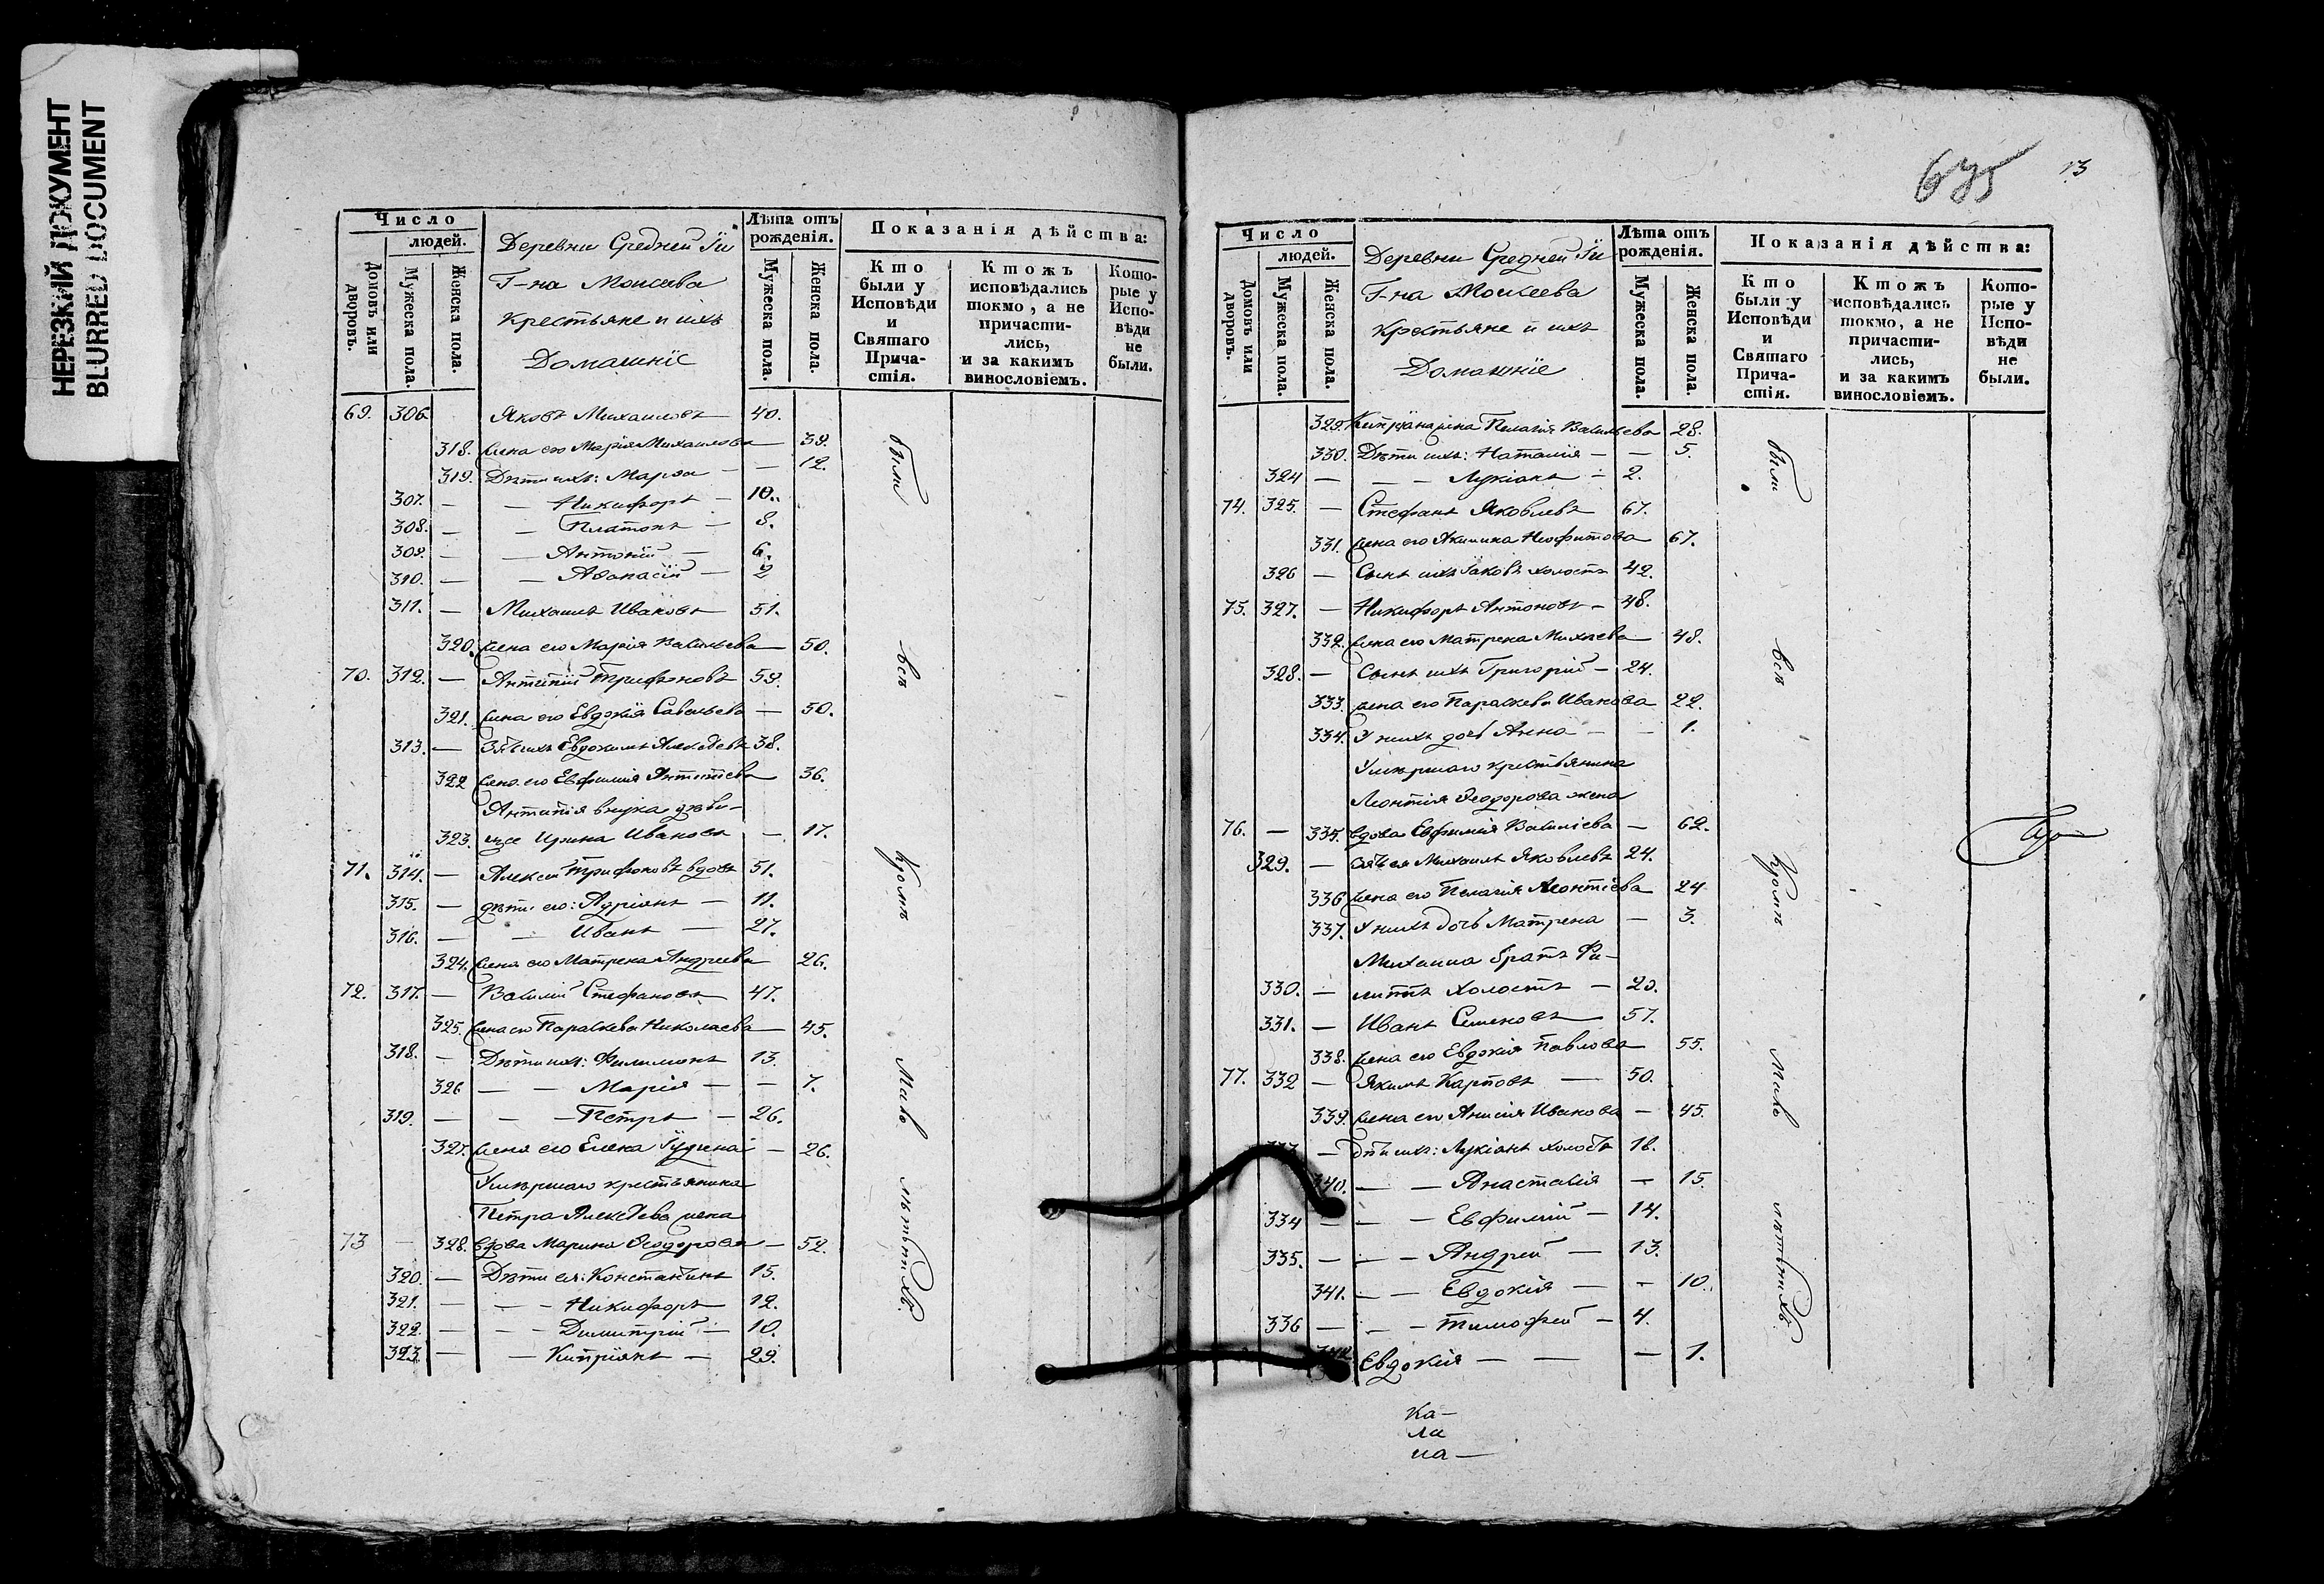 НЕРЕЗКИЙ ДОКУМЕНТ
BLURRED DOCUMENT
Число
людей.
Домовъ или дворовъ.
Мужеска пола.
Женска пола.
Деревни Средней Іи
Г-на Моисеева
Крестьяне и ихъ
Домашніе
Лѣта отъ рожденія.
Мужеска пола.
Женска пола.
Показанія дѣйства:
Кто были у Исповѣди и Святаго Причастія.
Ктожъ исповѣдались токмо, а не причастились, и за какимъ винословіемъ.
Которые у Исповѣди не были.
69. 306. Яковъ Михаиловъ 40.
318. жена его Марія Михаилова 39.
319. Дѣти ихъ: Марѳа — — 12.
307. — — Никифоръ — 10.
308. — — Платонъ — 8.
309. — — Антоній — 6.
310. — — Аѳанасій — 2
311. — Михаилъ Ивановъ 51.
320. жена его Марія Васильева 50.
70. 312. — Антипій Трифоновъ 59.
321. жена его Евдокія Савельева — 50.
313. — Зять ихъ Евдокимъ Алексѣевъ 38.
322 жена его Евфимія Антипіева 36.
Антипія внука дѣви-
323. ца Ирина Иванова — 17.
71. 314. — Алексій Трифоновъ вдовъ 51.
315. — дѣти его: Адріанъ — 11.
316. — — Иванъ — 27.
324. жена его Матрена Андреева 26.
72. 317. — Василій Стефановъ 47.
325. жена его Параскева Николаева 45.
318. — Дѣти ихъ: Филимонъ 13.
326 — — Марія — — 7.
319. — — — Петръ — 26.
327. жена его Елена — 26.
Умершаго крестьянина
Петра Алексѣева жена
73 — 328. вдова Марина Ѳеодорова — 52.
320. — Дѣти ея: Константинъ 15.
321. — — — Никифоръ 12.
322. — — — Димитрій — 10.
323. — — Кипріянъ — 29.
были
всѣ
кромѣ
малолѣтнихъ.
675
13
Число
людей.
Домовъ или дворовъ.
Мужеска пола.
Женска пола.
Деревни Средней Іи
Г-на Моисеева
Крестьяне и ихъ
Домашніе
Лѣта отъ рожденія.
Мужеска пола.
Женска пола.
Показанія дѣйства:
Кто были у Исповѣди и Святаго Причастія.
Ктожъ исповѣдались токмо, а не причастились, и за какимъ винословіемъ.
Которые у Исповѣди не были.
329. Кипріана жена Пелагія Васильева 28.
330. Дѣти ихъ: Наталія — — 5.
324 — — — Лукіанъ — 2.
74. 325. — Стефанъ Яковлевъ 67.
331. жена его Акилина Неофитова 67.
326 — Сынъ ихъ Іаковъ холостъ 42.
75. 327. — Никифоръ Антоновъ — 48.
332. жена его Матрена Михѣева 48.
328. — Сынъ ихъ Григорій — 24.
333. жена его Параскева Иванова 22.
334. У нихъ дочь Анна — — 1.
Умершаго крестьянина
Леонтія Ѳеодорова жена
76. — 335. вдова Евфимія Василіева — 62.
329. — зять ея Михаилъ Яковлевъ 24.
336 жена его Пелагія Леонтіева 24
337. У нихъ дочь Матрена — 3.
Михаила братъ Фи-
330. — липпъ Холостъ — 20.
331. — Иванъ Семеновъ 57.
338. жена его Евдокія Павлова 55.
77. 332 — Якимъ Карповъ — 50.
339. жена его Анисія Иванова — 45.
— Дѣти ихъ: Лукіанъ холостъ 18.
340. — — Анастасія — 15.
334 — — — Евфимій — 14.
335. — — — Андрей — 13.
341. — — Евдокія — — 10.
336 — — — Тимофей — 4.
Евдокія — — — 1.
были
всѣ
кромѣ
малолѣтнихъ.
Ка-
ли
на —